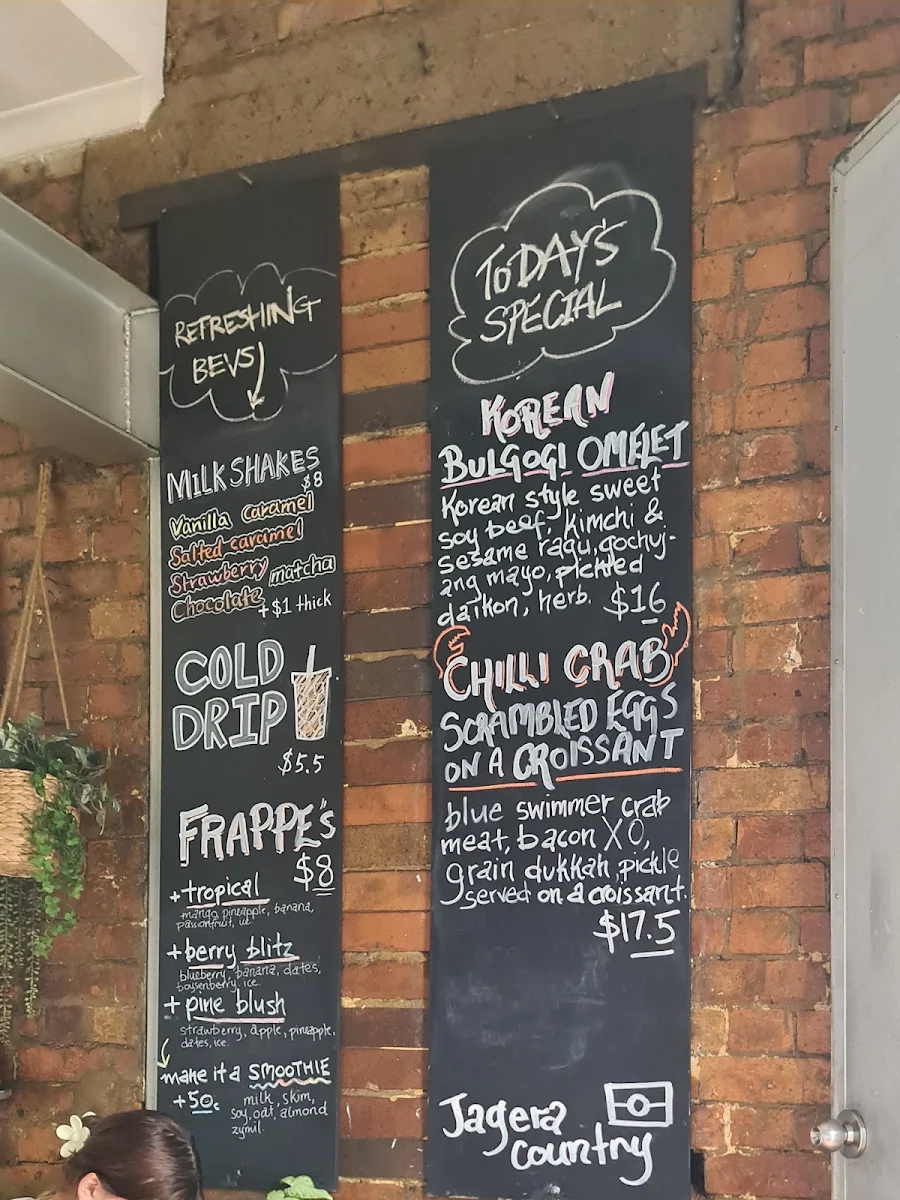 REFRESHING
BEVS
MILKSHAKES
$8
Vanilla Caramel
Salted caramel
Strawberry matcha
Chocolate +$1 thick
COLD
DRIP
$5.5
FRAPPE'S
$8
+ tropical
mango, pineapple, banana,
passionfruit, ice
+ berry blitz
blueberry, banana, dates,
boysenberry, ice.
+ pine blush
strawberry, apple, pineapple,
dates, ice.
make it a SMOOTHIE
+50c milk, skim,
soy, oat, almond
zymil.
TODAY'S
SPECIAL
KOREAN
BULGOGI OMELET
Korean style sweet
soy beef, kimchi &
sesame ragu, gochuj-
ang mayo, pickled
daikon, herb. $16
CHILLI CRAB
SCRAMBLED EGGS
ON A CROISSANT
blue swimmer crab
meat, bacon XO,
grain dukkah, pickle
served on a croissant.
$17.5
Jagera
country